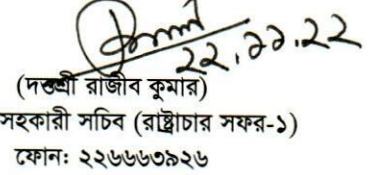 ২২.১১.২২
রাজীব কুমার)
সহকারী সচিব (রাষ্ট্রাচার সফর-১)
ফোনঃ ২২৬৬৬৩৯২৬